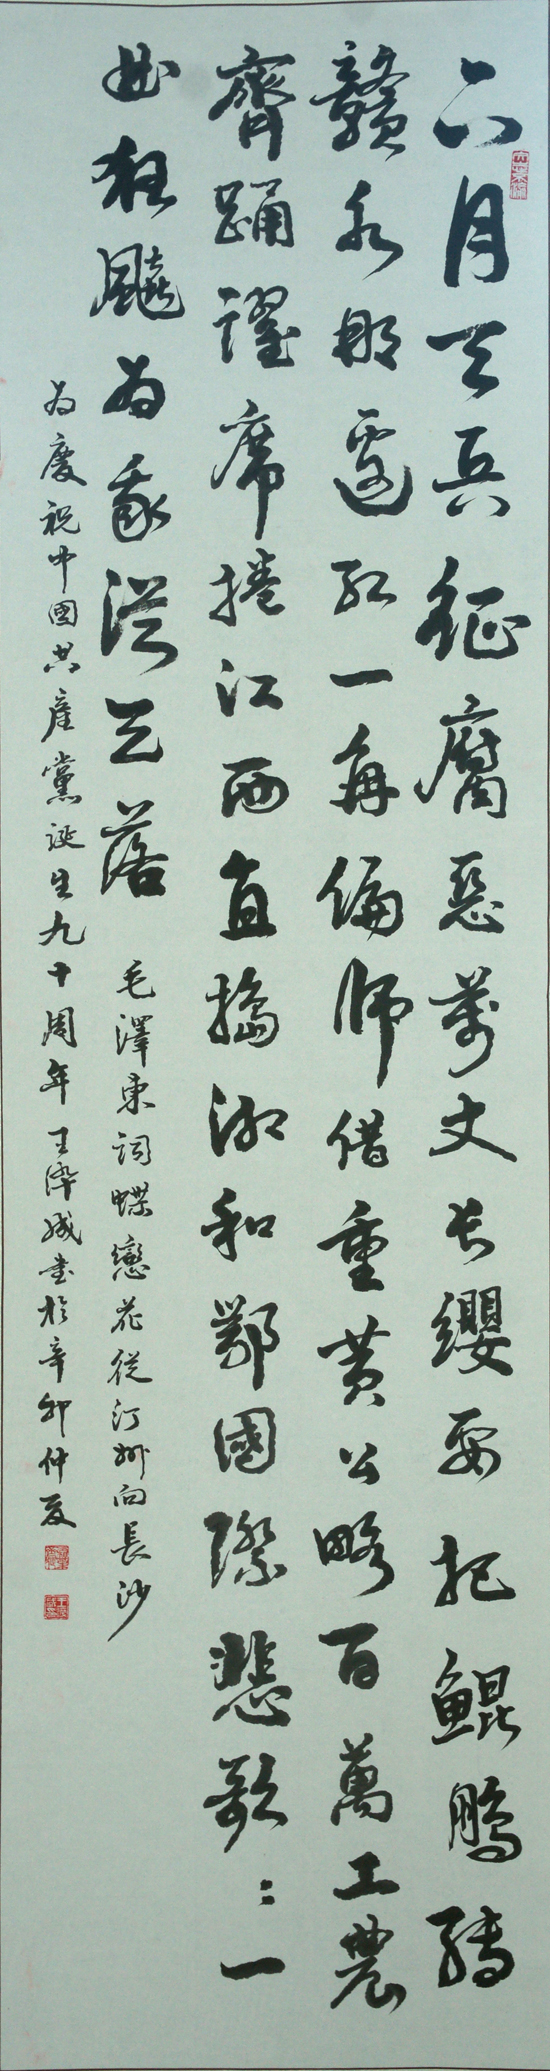 六月天兵征腐惡萬丈長纓要把鯤鵬縛
贛水那邊紅一角偏師借重黃公略百萬工農
齊踴躍席捲江西直搗湖和鄂國際悲歌：一
曲狂飆為我從天落
毛澤東詞蝶戀花從汀州向長沙
為慶祝中國共產黨誕生九十周年 王成書於辛卯仲夏